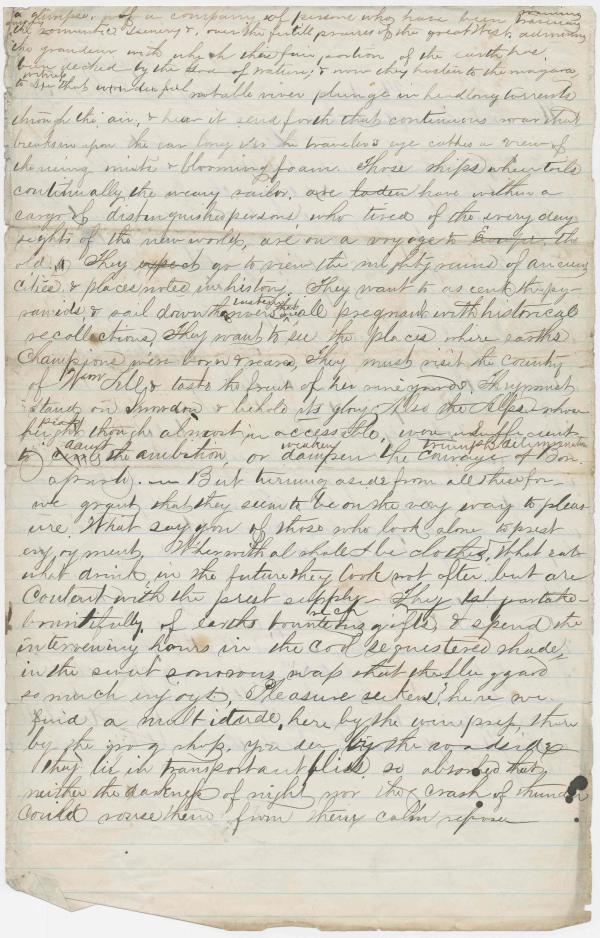 a glimpse, & of a company of persons who have been
the romantic scenery &, over the fertile prairies of the great West, admiring
the grandeur with which this fair portion of the earth has
been decked by the God of nature, & now they hasten to the niagara
to see that wonderful notable river plunge in headlong torrents
through the air, & hear it send forth that continuous roar that
breaks in upon the ear long ere the travelers eye catches a view of
the rising mists & blooming foam. Those ships where toils
continually the weary sailor, are laden have within a
cargo of distinguished persons, who tired of the every day
sights of the new world, are on a voyage to Europe. the
old. They expect go to view the mighty ruins of ancient
cities & places noted in history. They want to ascend the py-
ramids & sail down the rivers all pregnant with historical
recollections, They want to see the places where earths
Champions were born & reared, They must visit the country
of & taste the fruit of her vineyards. They must
stand on Snowdon & behold its glory. Also the Alps whose
height though almost inaccessible,
daunt weaken triumph & determination
to the ambition, or dampen the courage of Bon-
aparte. But turning aside from all this for-
we grant that they seem to be on the very way to pleas-
ure. What say you of those who look alone to prest
enjoyment, Wherewithal shall I be clothed, What eat &
what drink, in the future they look not after. but are
Content with the prest supply. They partake
bountifully, of earths rich gifts, & spend the
intervening hours in the cool sequestered shade,
in the sweet sonorous nap that the sluggard
so much enjoys, Pleasure seekers, here we
find a multitude, here by the wine press, there
by the grog shop, you see, by the roadside
They lie in transportant bliss, so absorbed that
neither the darkness of night nor the crash of thunder
could rouse them from their calm repose